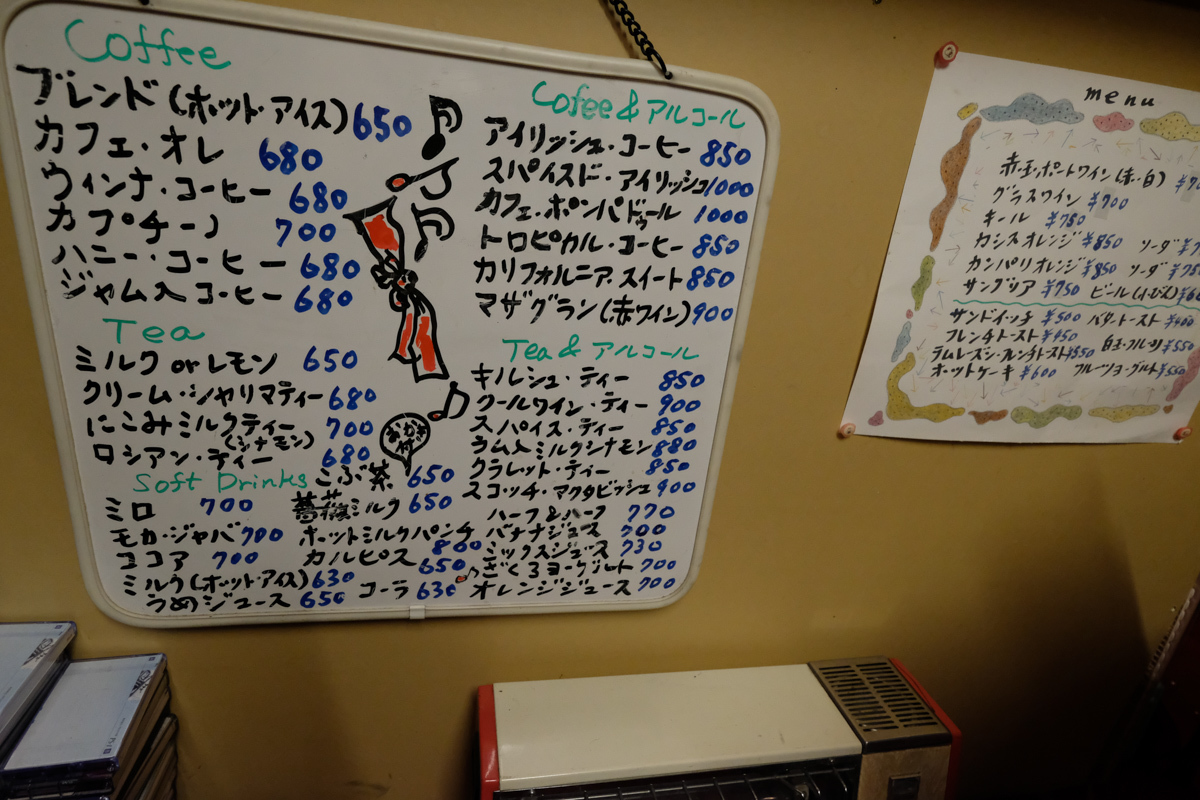 Coffee
ブレンド(ホット・アイス) 650
カフェ・オレ 680
ウィンナ・コーヒー 680
カプチーノ 700
ハニー・コーヒー 680
ジャム入コーヒー 680
Tea
ミルク or レモン 650
クリーム・シャリマティー 680
にこみミルクティー 700
(シナモン)
ロシアン・ティー 680
Soft Drinks
こぶ茶 650
ミロ 700
薔薇ミルク 650
モカ・ジャバ 700
ホットミルクパンチ 800
ココア 700
カルピス 650
ミルク(ホット・アイス) 630
コーラ 630
うめジュース 650
Cofee & アルコール
アイリッシュ・コーヒー 850
スパイスド・アイリッシュ 1000
カフェ・ポンパドゥール 1000
トロピカル・コーヒー 850
カリフォルニア・スイート 850
マザグラン(赤ワイン) 900
Tea & アルコール
キルシュ・ティー 850
クールワイン・ティー 900
スパイス・ティー 850
ラム入ミルクシナモン 880
クラレット・ティー 850
スコッチ・マクタビッシュ 900
ハーフ&ハーフ 770
バナナジュース 700
ミックスジュース 730
ざくろヨーグルト 700
オレンジジュース 700
menu
赤玉・ポートワイン(赤・白)
グラスワイン ¥700
キール ¥750
カシスオレンジ ¥850 ソーダ
カンパリオレンジ ¥850 ソーダ
サングリア ¥750 ビール(小びん)
サンドイッチ ¥500 バタートースト ¥400
フレンチトースト ¥450
ラムレーズン・フレンチトースト ¥550 白玉・フルーツ ¥550
ホットケーキ ¥600 フルーツヨーグルト ¥550